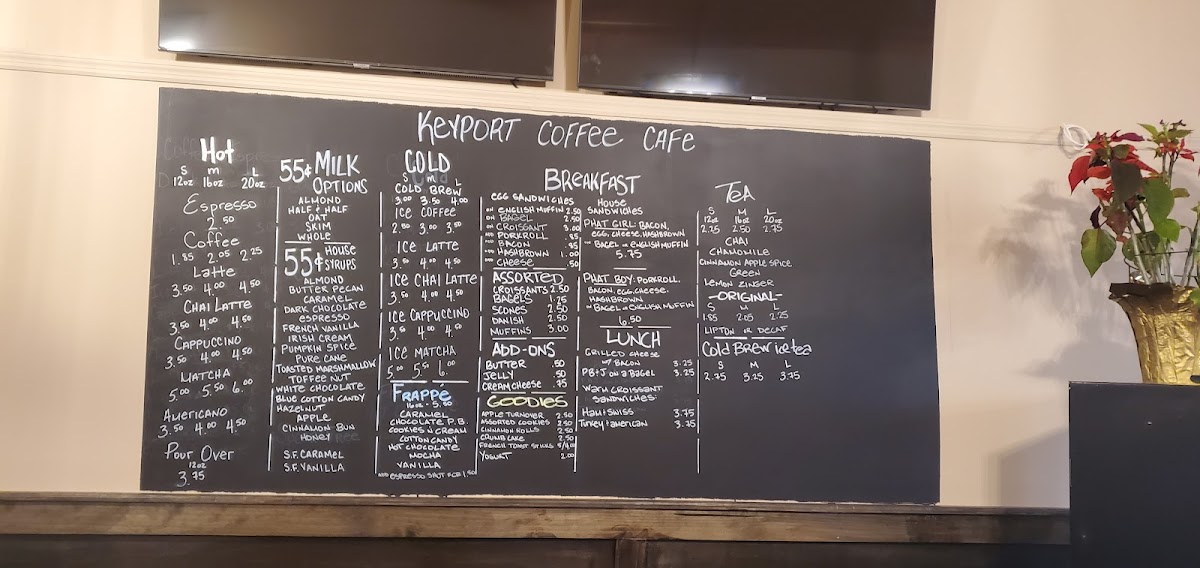 KEYPORT COFFEE CAFE
Hot
S M L
12oz 16oz 20oz
Espresso
2.50
Coffee
1.85 2.05 2.25
Latte
3.50 4.00 4.50
CHAI LATTE
3.50 4.00 4.50
CAPPUCCINO
3.50 4.00 4.50
MATCHA
5.00 5.50 6.00
AMERICANO
3.50 4.00 4.50
POUR OVER
12oz
3.75
55¢ MILK
OPTIONS
ALMOND
HALF & HALF
OAT
SKIM
WHOLE
55¢ HOUSE
SYRUPS
ALMOND
BUTTER PECAN
CARAMEL
DARK CHOCOLATE
ESPRESSO
FRENCH VANILLA
IRISH CREAM
PUMPKIN SPICE
PURE CANE
TOASTED MARSHMALLOW
TOFFEE NUT
WHITE CHOCOLATE
BLUE COTTON CANDY
HAZELNUT
APPLE
CINNAMON BUN
HONEY
S.F. CARAMEL
S.F. VANILLA
COLD
S M L
COLD BREW
3.00 3.50 4.00
ICE COFFEE
2.50 3.00 3.50
ICE LATTE
3.50 4.00 4.50
ICE CHAI LATTE
3.50 4.00 4.50
ICE CAPPUCCINO
3.50 4.00 4.50
ICE MATCHA
5.00 5.50 6.00
FRAPPÉ
16oz - 5.50
CARAMEL
CHOCOLATE P.B.
COOKIES N CREAM
COTTON CANDY
HOT CHOCOLATE
MOCHA
VANILLA
ADD ESPRESSO SHOT FOR 1.50
BREAKFAST
EGG SANDWICHES
ON ENGLISH MUFFIN 2.50
ON BAGEL 2.50
ON CROISSANT 3.00
ADD PORKROLL .85
ADD BACON .85
ADD HASHBROWN 1.00
ADD CHEESE .50
ASSORTED
CROISSANTS 2.50
BAGELS 1.75
SCONES 2.50
DANISH 2.50
MUFFINS 3.00
ADD-ONS
BUTTER .50
JELLY .50
CREAMCHEESE .75
GOODIES
APPLE TURNOVER 2.50
ASSORTED COOKIES 2.50
CINNAMON ROLLS 2.50
CRUMB CAKE 2.50
FRENCH TOAST STICKS
YOGURT 2.00
HOUSE
SANDWICHES
PHAT GIRL: BACON,
EGG, CHEESE, HASHBROWN
ON BAGEL OR ENGLISH MUFFIN
5.75
PHAT BOY: PORKROLL,
BACON, EGG, CHEESE,
HASHBROWN
ON BAGEL OR ENGLISH MUFFIN
6.50
LUNCH
GRILLED CHEESE
W/ BACON 3.25
PB+J ON A BAGEL 3.25
WARM CROISSANT
SANDWICHES:
HAM + SWISS 3.75
TURKEY + AMERICAN 3.75
TEA
S M L
12oz 16oz 20oz
2.25 2.50 2.75
CHAI
CHAMOMILE
CINNAMON APPLE SPICE
GREEN
LEMON ZINGER
-ORIGINAL-
S M L
1.85 2.05 2.25
LIPTON OR DECAF
Cold BREW ice tea
S M L
2.75 3.25 3.75